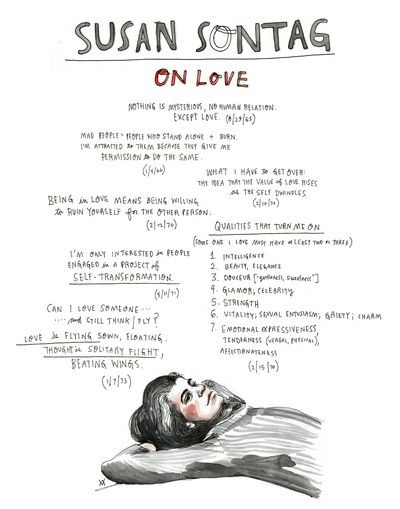 SUSAN SONTAG
ON LOVE
NOTHING IS MYSTERIOUS, NO HUMAN RELATION.
EXCEPT LOVE. (8/29/65)
MAD PEOPLE = PEOPLE WHO STAND ALONE + BURN.
I'M ATTRACTED TO THEM BECAUSE THEY GIVE ME
PERMISSION TO DO THE SAME.
WHAT I HAVE TO GET OVER:
THE IDEA THAT THE VALUE OF LOVE RISES
AS THE SELF DWINDLES
BEING in LOVE MEANS BEING WILLING
to RUIN YOURSELF for THE OTHER PERSON.
QUALITIES THAT TURN ME ON
(SOME ONE I LOVE MUST HAVE at LEAST TWO or THREE)
1. INTELLIGENCE
2. BEAUTY, ELEGANCE
3. DOUCEUR ["gentleness, sweetness"]
4. GLAMOR; CELEBRITY
5. STRENGTH
6. VITALITY; SEXUAL ENTHUSIASM; GAIETY; CHARM
7. EMOTIONAL EXPRESSIVENESS,
TENDERNESS (VERBAL, PHYSICAL),
AFFECTIONATENESS
(2/15/70)
I'M ONLY INTERESTED in PEOPLE
ENGAGED in A PROJECT of
SELF-TRANSFORMATION.
CAN I LOVE SOMEONE....
....and STILL THINK / FLY?
LOVE is FLYING SOWN, FLOATING.
THOUGHT is SOLITARY FLIGHT,
BEATING WINGS.
(1/7/73)